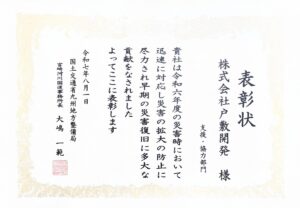 表彰状
支援・協力部門
株式会社戸敷開発 様
貴社は令和六年度の災害時において
迅速に対応し災害の拡大の防止に
尽力され早期の災害復旧に多大な
貢献をなされました
よってここに表彰します
令和七年八月一日
国土交通省九州地方整備局
宮崎河川国道事務所長
大嶋 一範